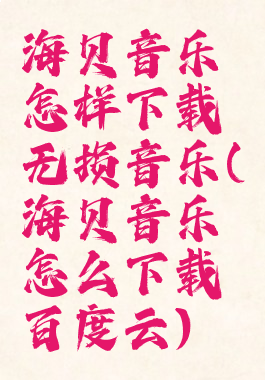 海贝音乐
怎样下载
无损音乐(
海贝音乐
怎么下载
百度云)